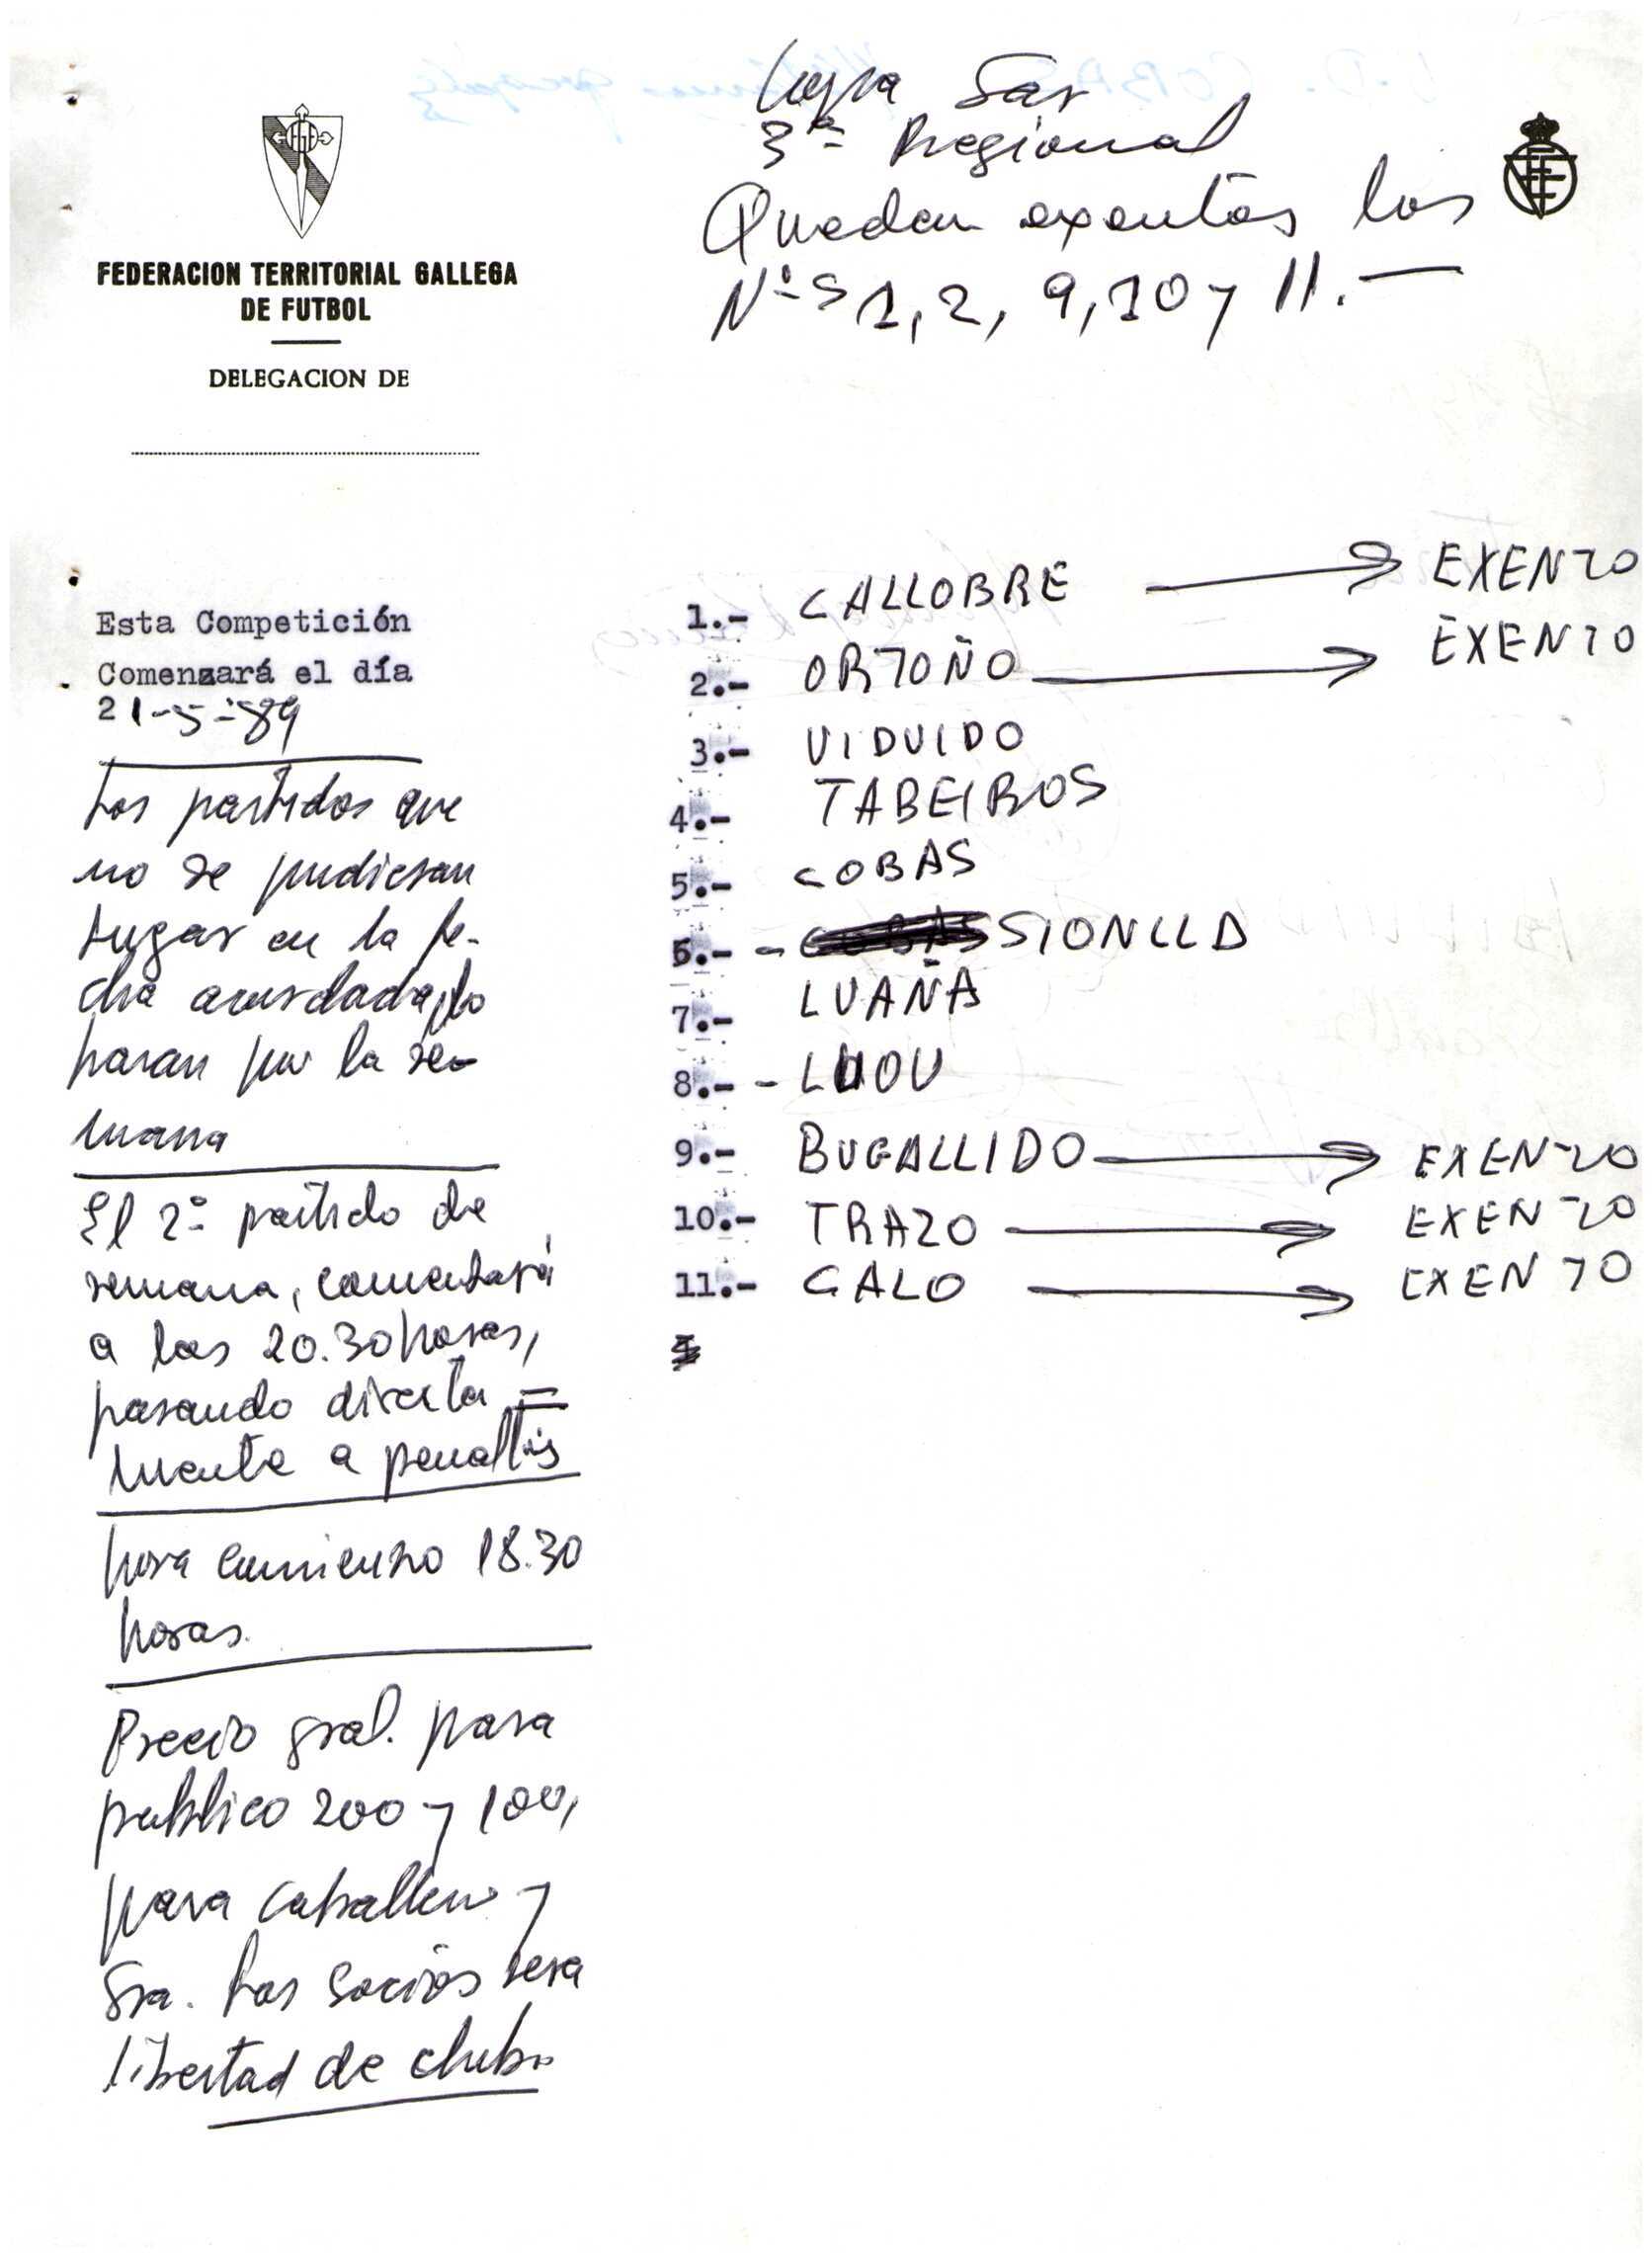 Copa Sar
3ª Regional
Quedan exentos los
Nºs 1, 2, 9, 10 y 11.—
FEDERACION TERRITORIAL GALLEGA
DE FUTBOL
DELEGACION DE
Esta Competición
Comenzará el día
21-5-89
Los partidos que
no se pudiesan
jugar en la fe-
cha acordada, lo
haran por la se-
mana
El 2º partido de
semana, comentará
a las 20.30 horas,
pasando directa=
mente a penaltis
hora comienzo 18.30
horas.
Precio gral. para
publico 200 y 100,
para caballero y
Sra. Los Socios sera
libertad de clubs
1.- CALLOBRE → EXENTO
2.- ORTOÑO → EXENTO
3.- VIDUIDO
4.- TABEIROS
5.- COBAS
6.- - SIONLLA
7.- LUAÑA
8.- - LUOU
9.- BUGALLIDO → EXENTO
10.- TRAZO → EXENTO
11.- CALO → EXENTO